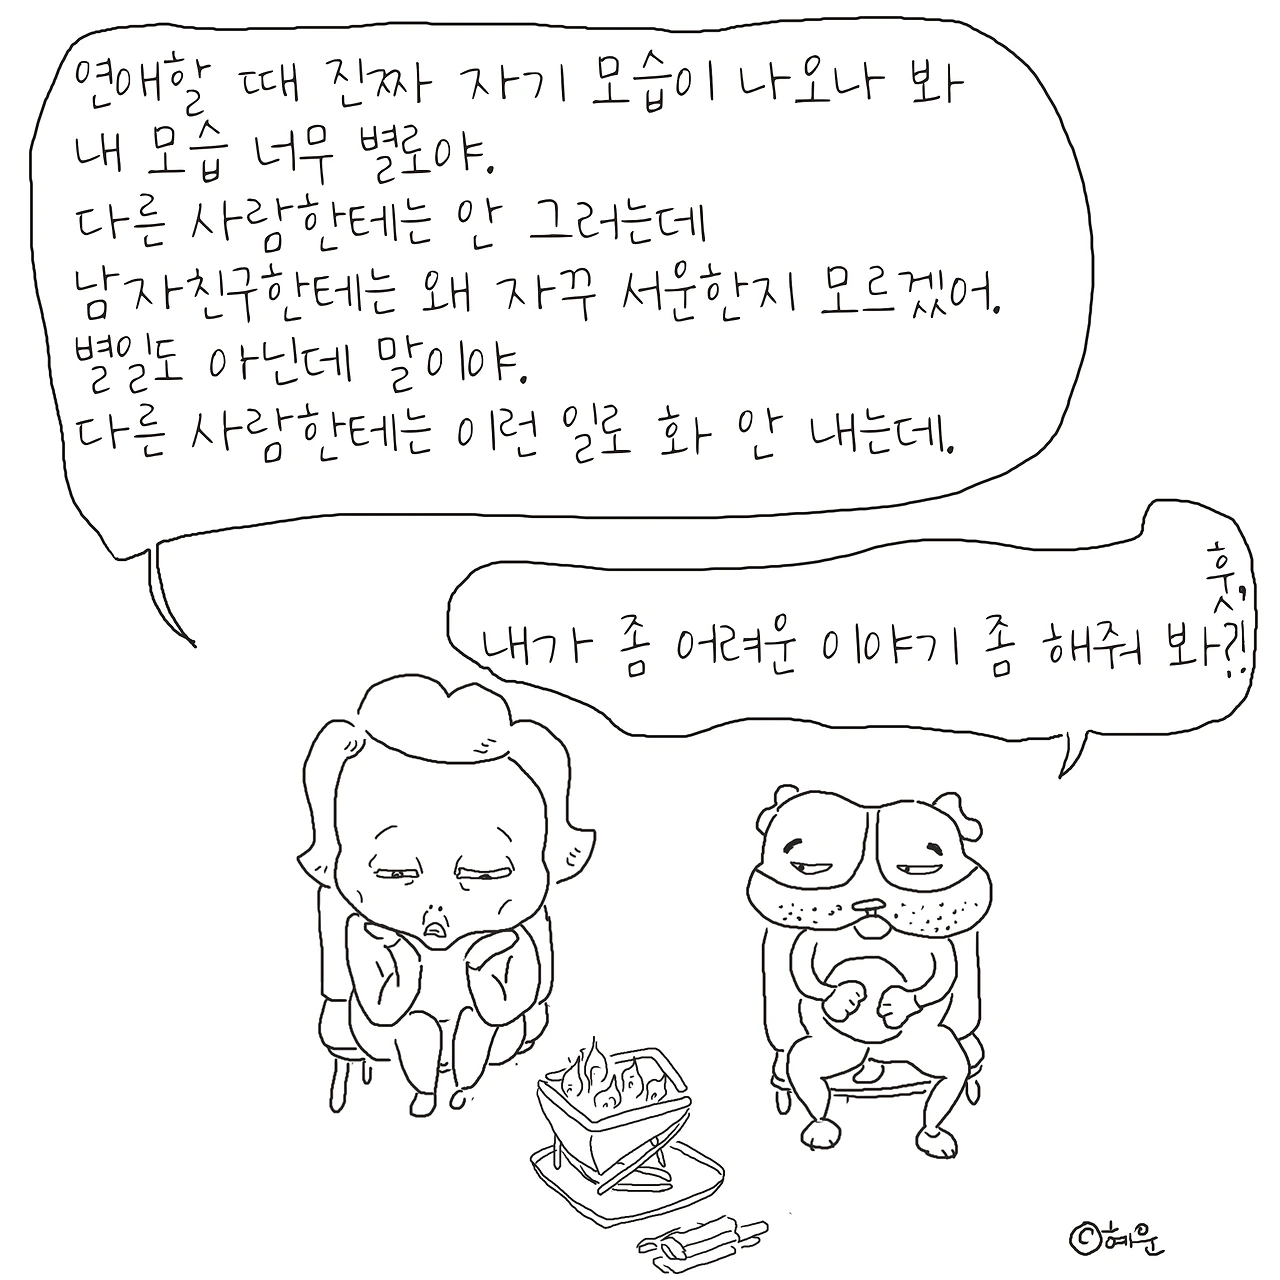 연애할 때 진짜 자기 모습이 나오나 봐
내 모습 너무 별로야.
다른 사람한테는 안 그러는데
남자친구한테는 왜 자꾸 서운한지 모르겠어.
별일도 아닌데 말이야.
다른 사람한테는 이런 일로 화 안 내는데.
훗,
내가 좀 어려운 이야기 좀 해줘 봐?!
©혜운